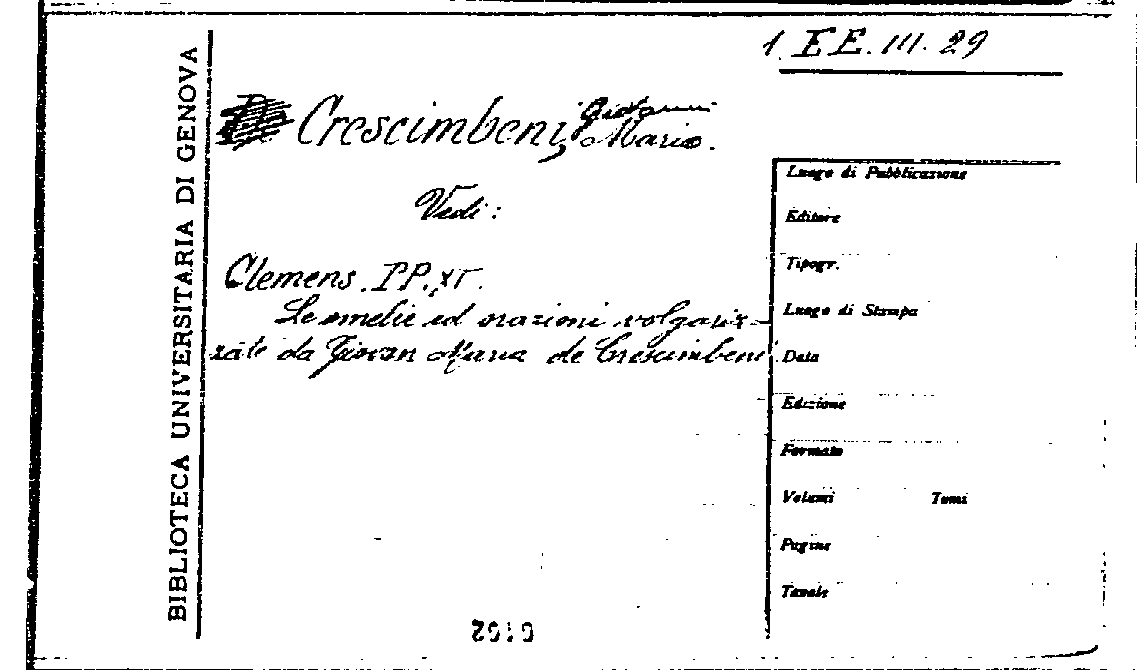 1 E E. III. 29
BIBLIOTECA UNIVERSITARIA DI GENOVA
Crescimbeni, Giovanni Mario.
Vedi:
Clemens. PP. XI.
Le omelie ed orazioni volgariz-
zate da Giovan Maria de Crescimbeni
Luogo di Pubblicazione
Editore
Tipogr.
Luogo di Stampa
Data
Edizione
Formato
Volumi Tomi
Pagine
Tavole